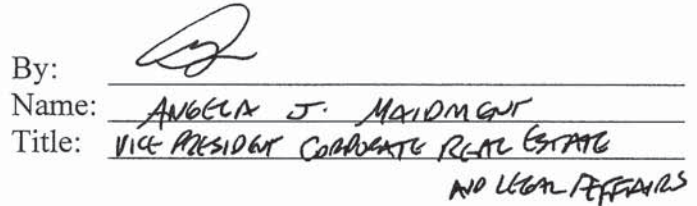 By:
Name: ANGELA J. MAIDMENT
Title: VICE PRESIDENT CORPORATE REAL ESTATE
AND LEGAL AFFAIRS